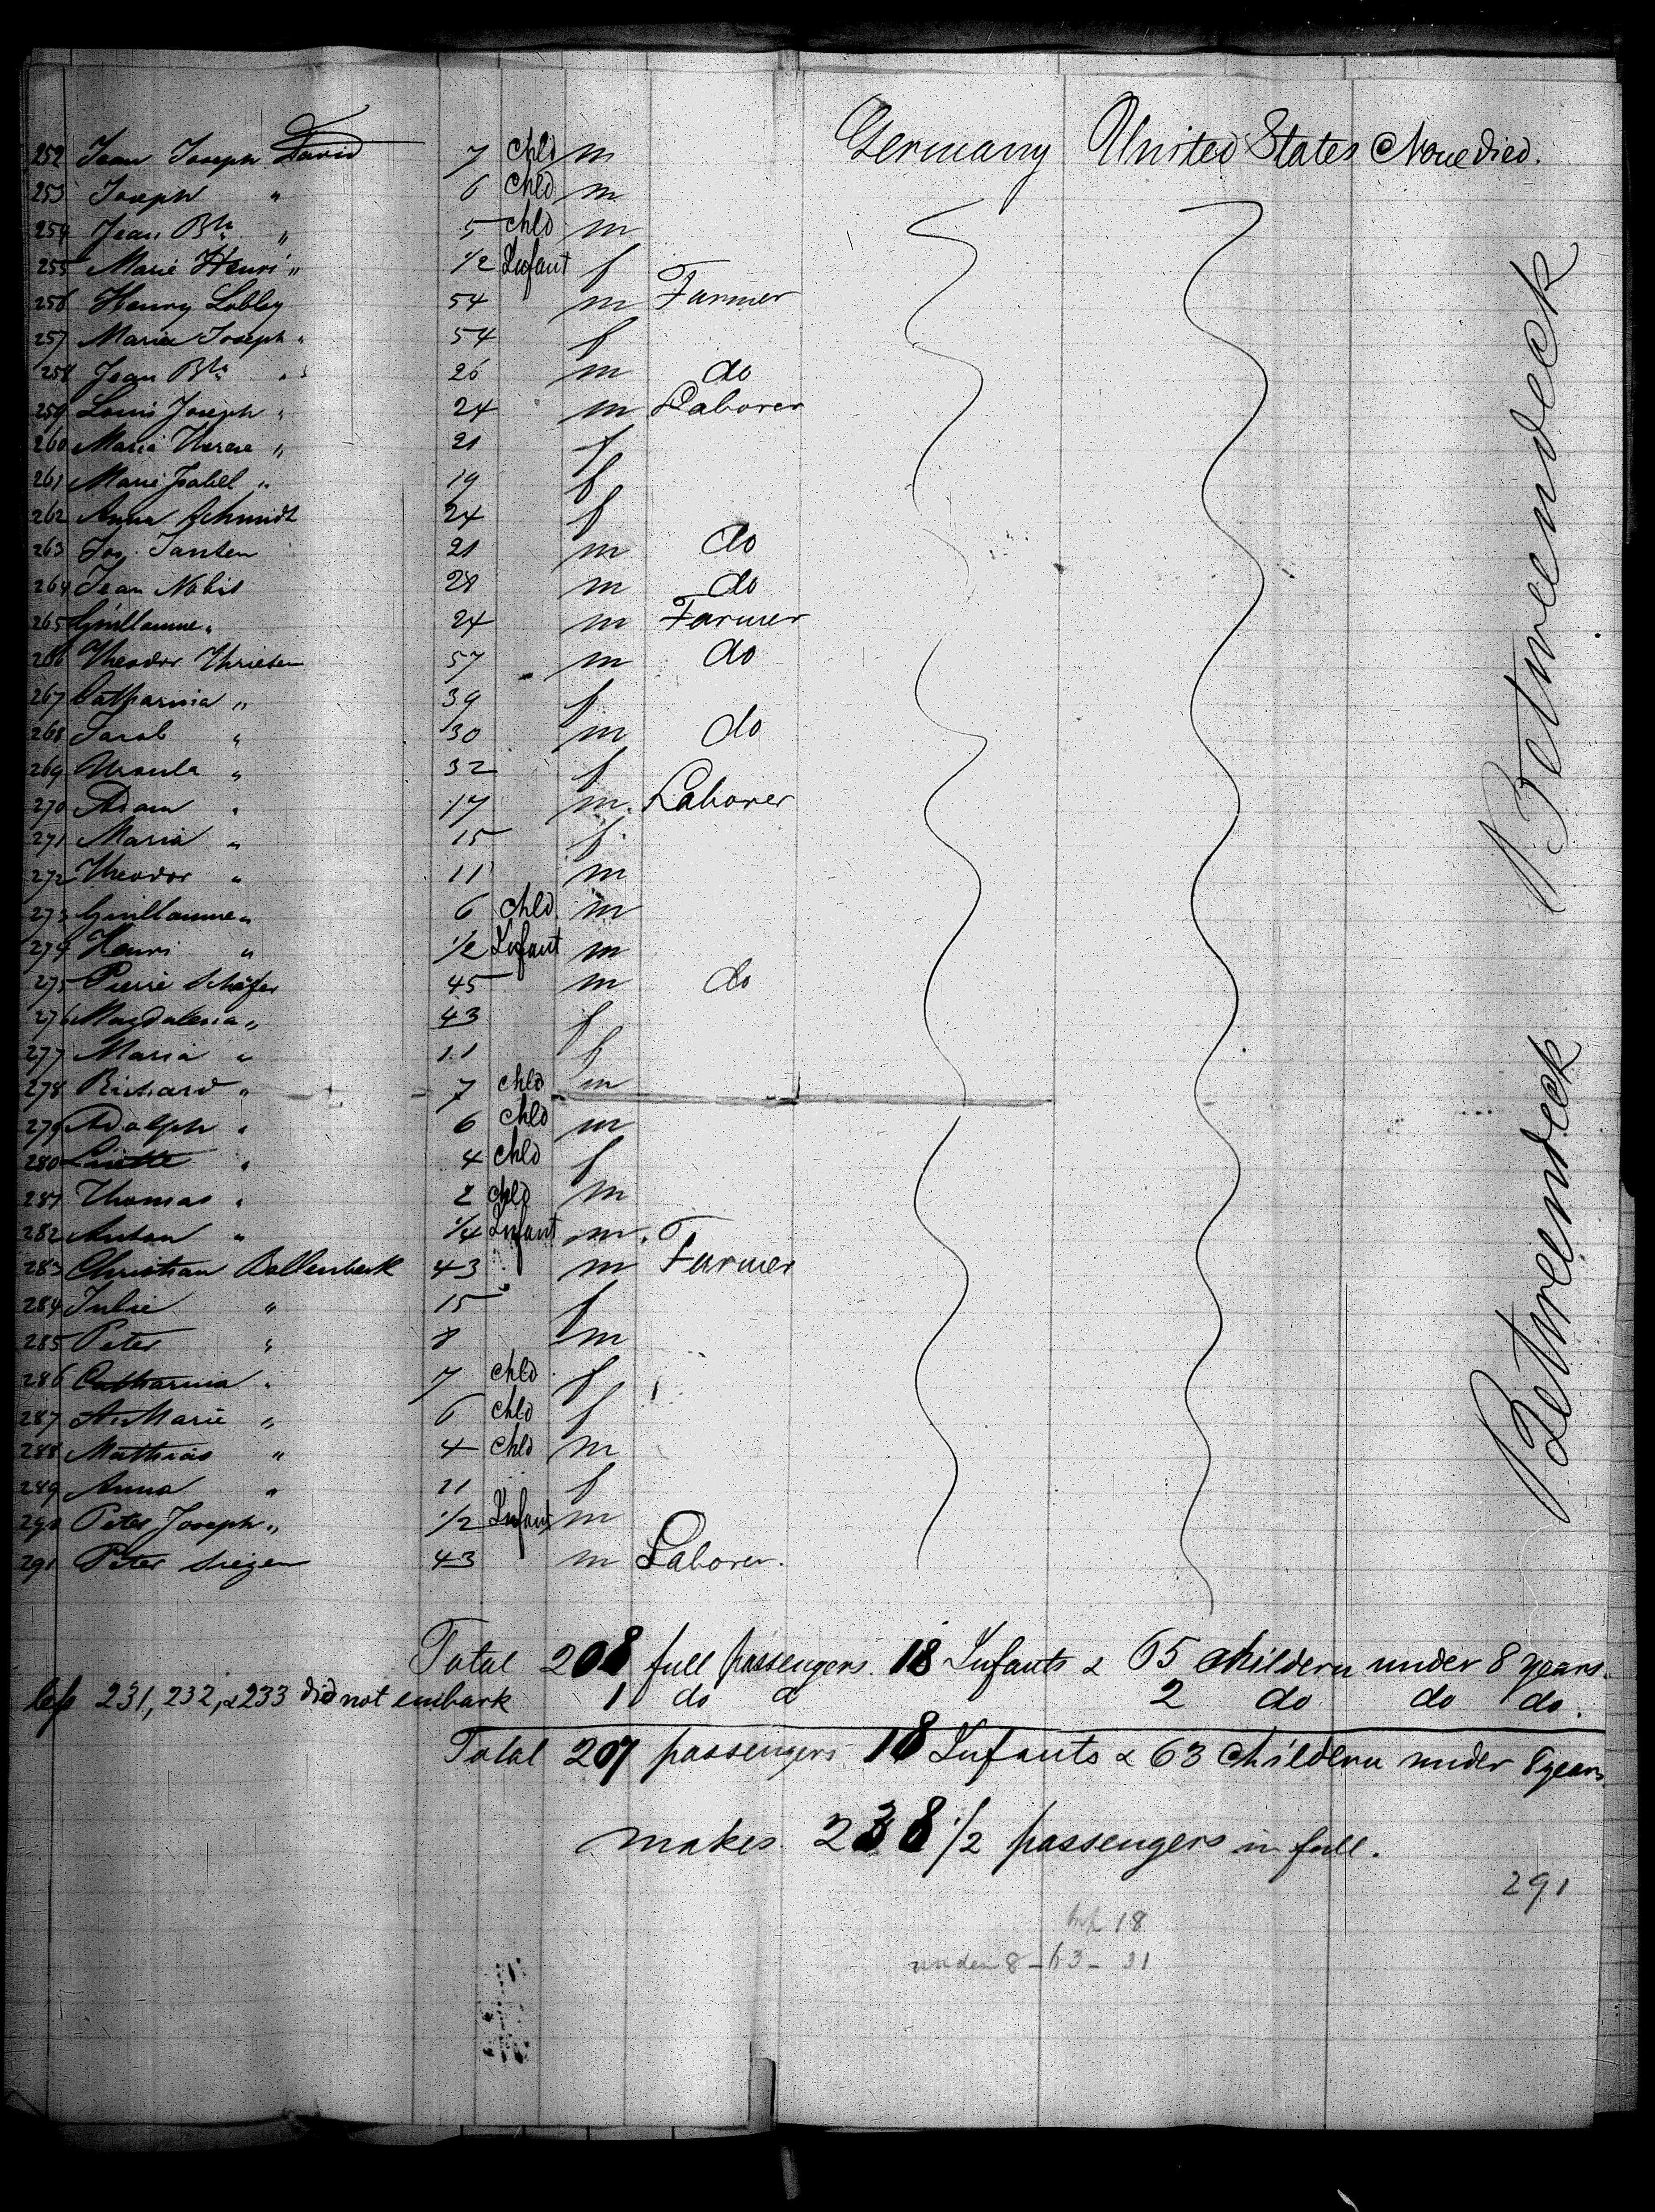 252 Jean Joseph David 7 Chld m Germany United States None died.
253 Joseph " 6 Chld m
254 Jean Bte " 5 chld m
255 Marie Henri " 1/2 Infant f
256 Henry Lobley 54 m Farmer
257 Maria Joseph " 54 f
258 Jean Bte " 26 m do
259 Louis Joseph " 24 m Laborer
260 Maria Therese " 21 f
261 Marie Isabel " 19 f
262 Anna Schmidt 24 f
263 Jos. Jansen 21 m do
264 Jean Nobis 28 m do
265 Guillaume " 24 m Farmer
266 Theodor 57 m do
267 Catharina " 39 f
268 Jacob " 30 m do
269 Ursula " 32 f
270 Adam " 17 m. Laborer
271 Maria " 15 f
272 Theodor " 11 m
273 Guillaume " 6 Chld m
274 Henri " 1/2 Infant m
275 Pierre Schäfer 45 m do
276 Magdalena " 43 f
277 Maria " 11 f
278 Richard " 7 chld m
279 Adolph " 6 Chld m
280 Linette " 4 Chld f
281 Thomas " 2 chld m
282 Anton " 1/4 Infant m.
283 Christian Bollenbeck 43 m Farmer
284 Julie " 15 f
285 Peter " 8 m
286 Catharina " 7 chld f
287 A. Marie " 6 chld f
288 Mathias " 4 Chld m
289 Anna " 21 f
290 Peter Joseph " 1/2 Infant m
291 Peter Siegen 43 m Laborer.
Betweendeck
Betweendeck
Total 208 full passengers. 18 Infants & 65 Childern under 8 years.
less 231, 232, & 233 did not embark 1 do d 2 do do do.
Total 207 passengers 18 Infants & 63 Childern under 8 years.
makes. 238 1/2 passengers in full.
291
Inf 18
under 8 - 63 - 31